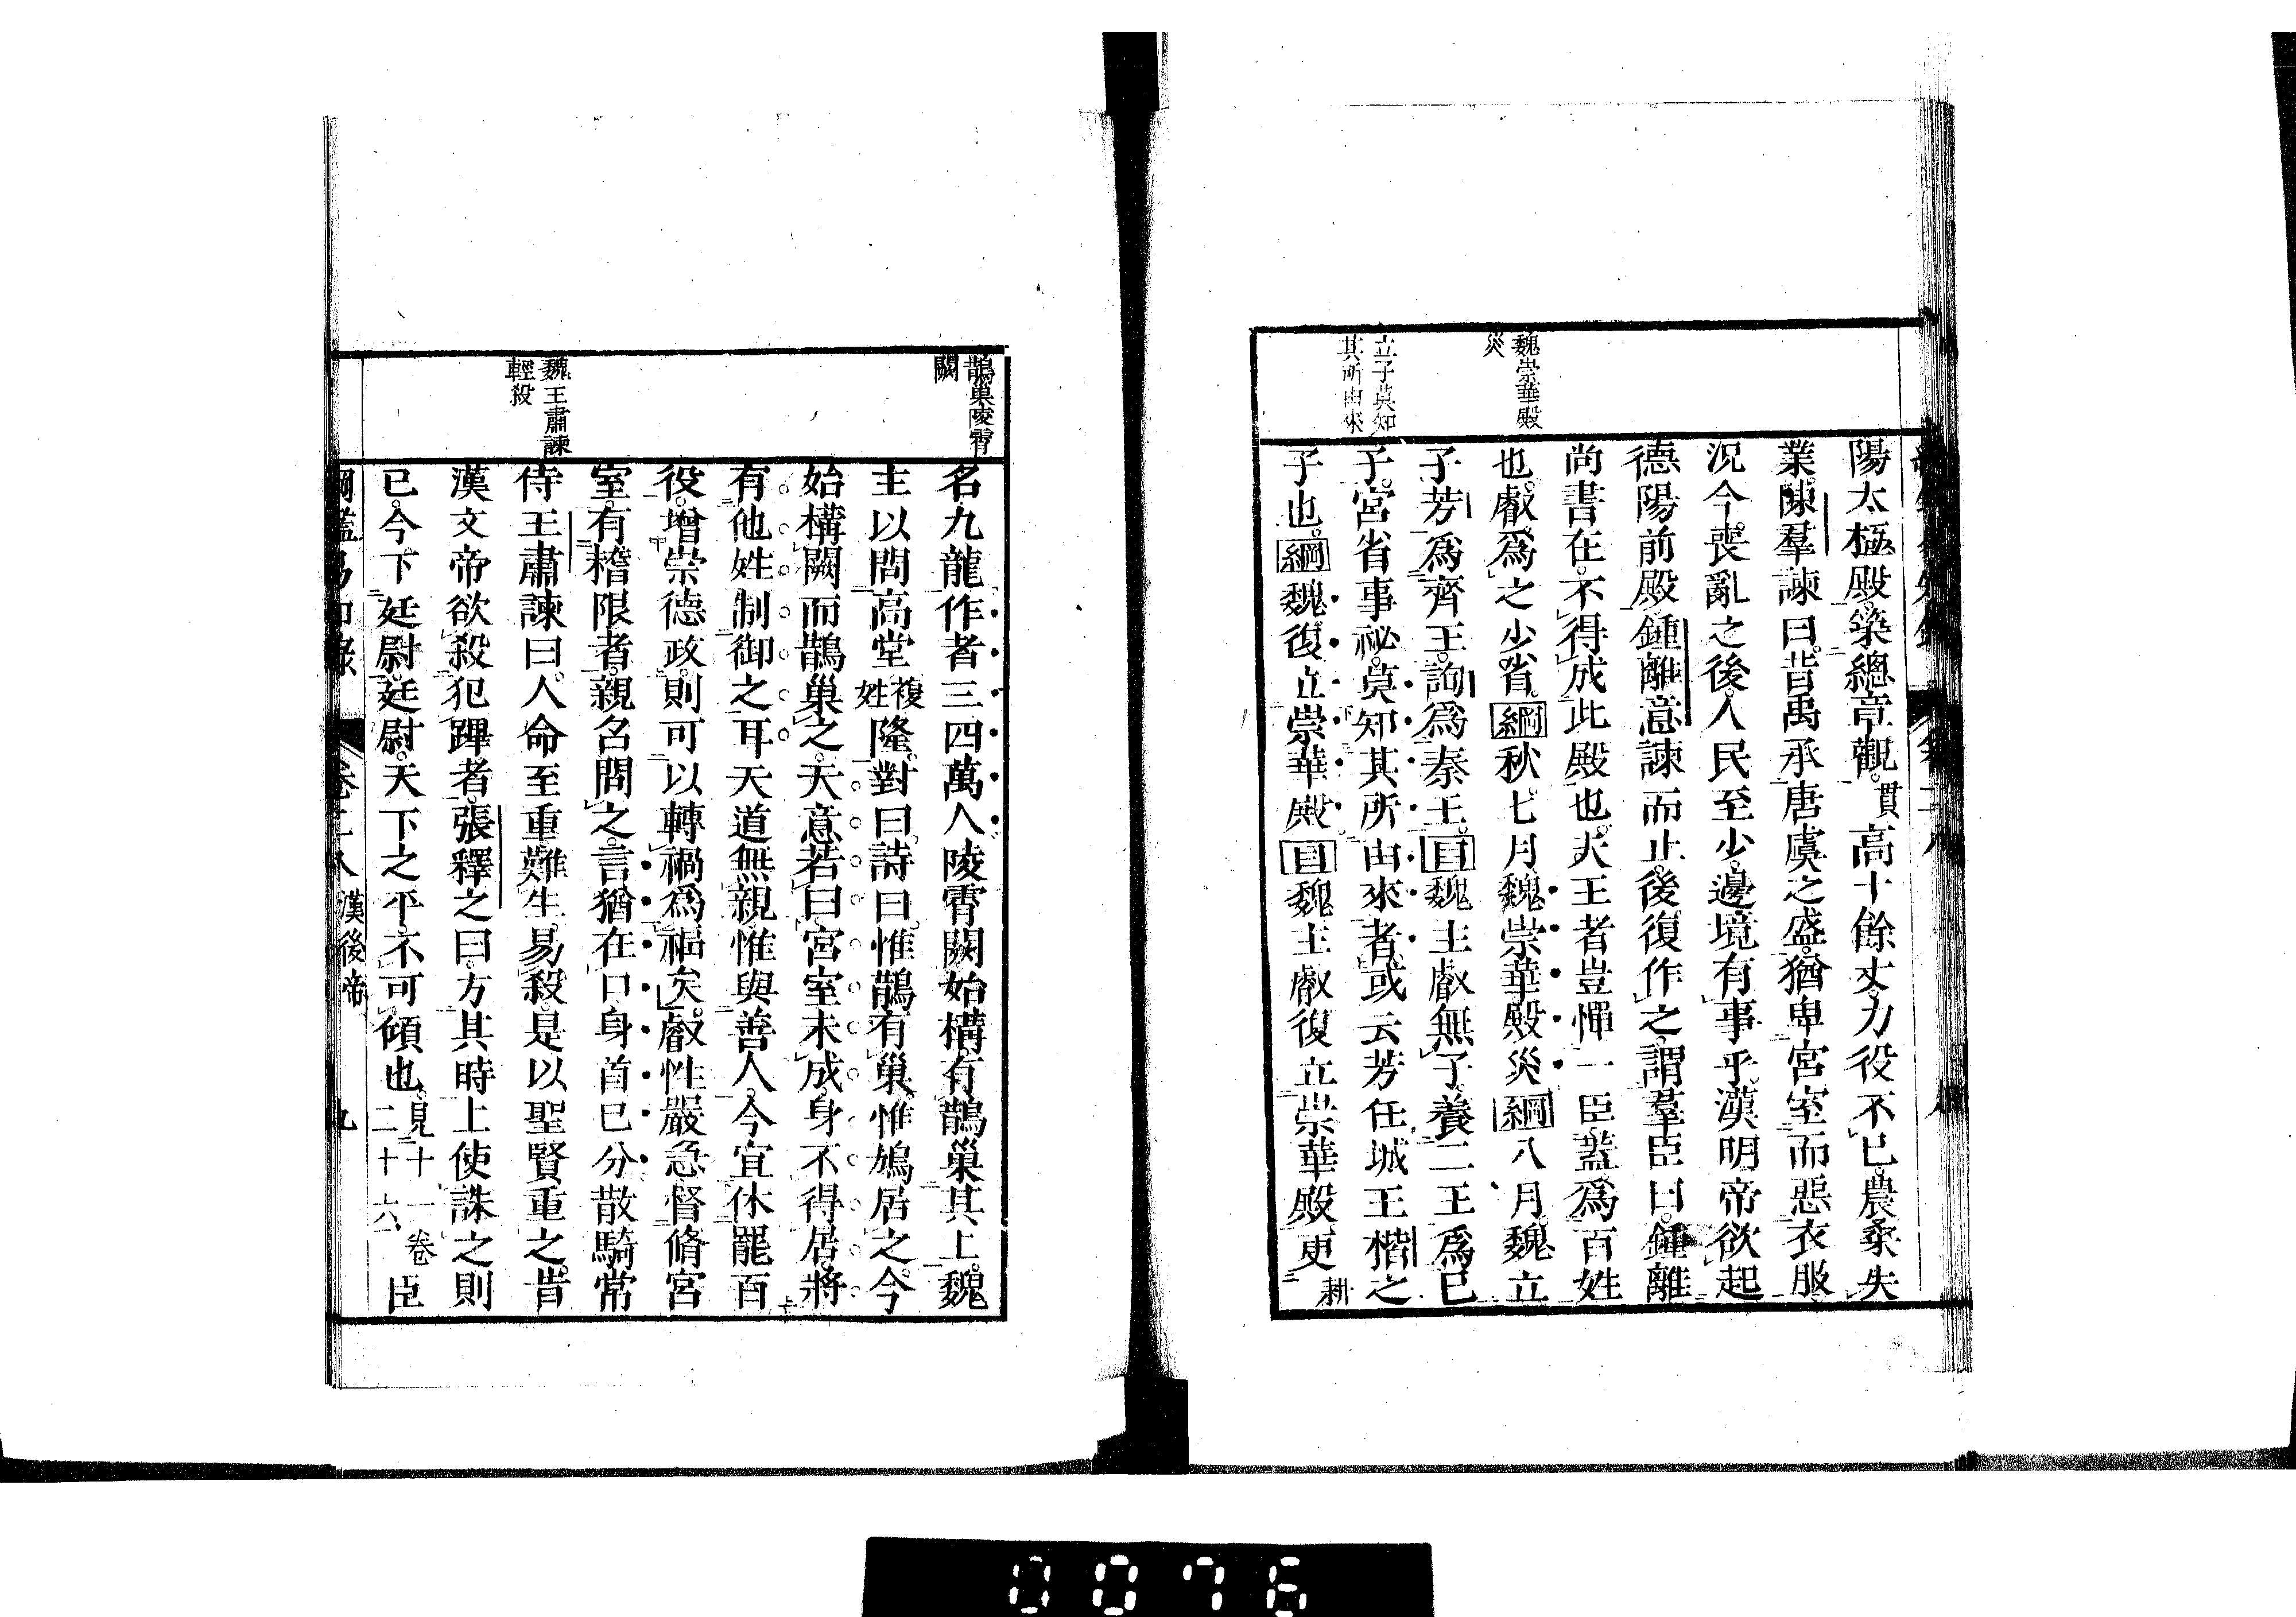 魏崇華殿
災
立子莫知
其所由來
陽太極殿。築總章觀。貫高十餘丈。力役不已。農桑失
業。陳羣諫曰。昔禹承唐虞之盛。猶卑宮室而惡衣服。
況今喪亂之後。人民至少。邊境有事乎。漢明帝欲起
德陽前殿。鍾離意諫而止。後復作之。謂羣臣曰。鍾離
尚書在。不得成此殿也。夫王者豈憚一臣。蓋爲百姓
也。叡爲之少省。綱秋。七月。魏崇華殿災。綱八月。魏立
子芳爲齊王。詢爲秦王。目魏主叡無子。養二王爲己
子。宮省事祕。莫知其所由來者。或云芳任城王楷之
子也。綱魏復立崇華殿。目魏主叡復立崇華殿。更耕
鵲巢陵霄
闕
魏王肅諫
輕殺
名九龍。作者三四萬人。陵霄闕始構。有鵲巢其上。魏
主以問高堂複姓隆。對曰。詩曰。惟鵲有巢。惟鳩居之。今
始構闕而鵲巢之。天意若曰。宮室未成。身不得居。將
有他姓制御之耳。天道無親。惟與善人。今宜休罷百
役。增崇德政。則可以轉禍爲福矣。叡性嚴急。督脩宮
室。有稽限者。親召問之。言猶在口。身首已分。散騎常
侍王肅諫曰。人命至重。難生易殺。是以聖賢重之。昔
漢文帝欲殺犯蹕者。張釋之曰。方其時上使誅之則
已。今下廷尉。廷尉。天下之平。不可傾也。見十一卷二十六臣
綱鑑易知錄 卷二八 漢後帝 九
0076